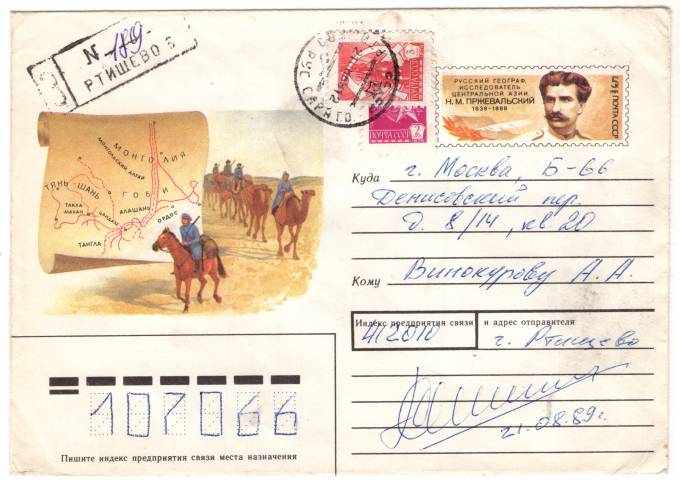 N 189
РТИЩЕВО 6
3
ПОЧТА СССР
2
ПОЧТА СССР
РУССКИЙ ГЕОГРАФ,
ИССЛЕДОВАТЕЛЬ
ЦЕНТРАЛЬНОЙ АЗИИ
Н. М. ПРЖЕВАЛЬСКИЙ
1839-1888
ПОЧТА СССР
МОНГОЛИЯ
МОНГОЛЬСКИЙ АЛТАЙ
ТЯНЬ-ШАНЬ
ГОБИ
ТАКЛА
МАКАН
ЦАЙДАМ
АЛАШАНЬ
ОРДОС
ТАНГЛА
Куда г. Москва, Б-66
Денисовский пер.
д. 8/14, кв. 20
Кому Винокурову А. А.
Индекс предприятия связи и адрес отправителя
412010 г. Ртищево
21.08.89г.
107066
Пишите индекс предприятия связи места назначения